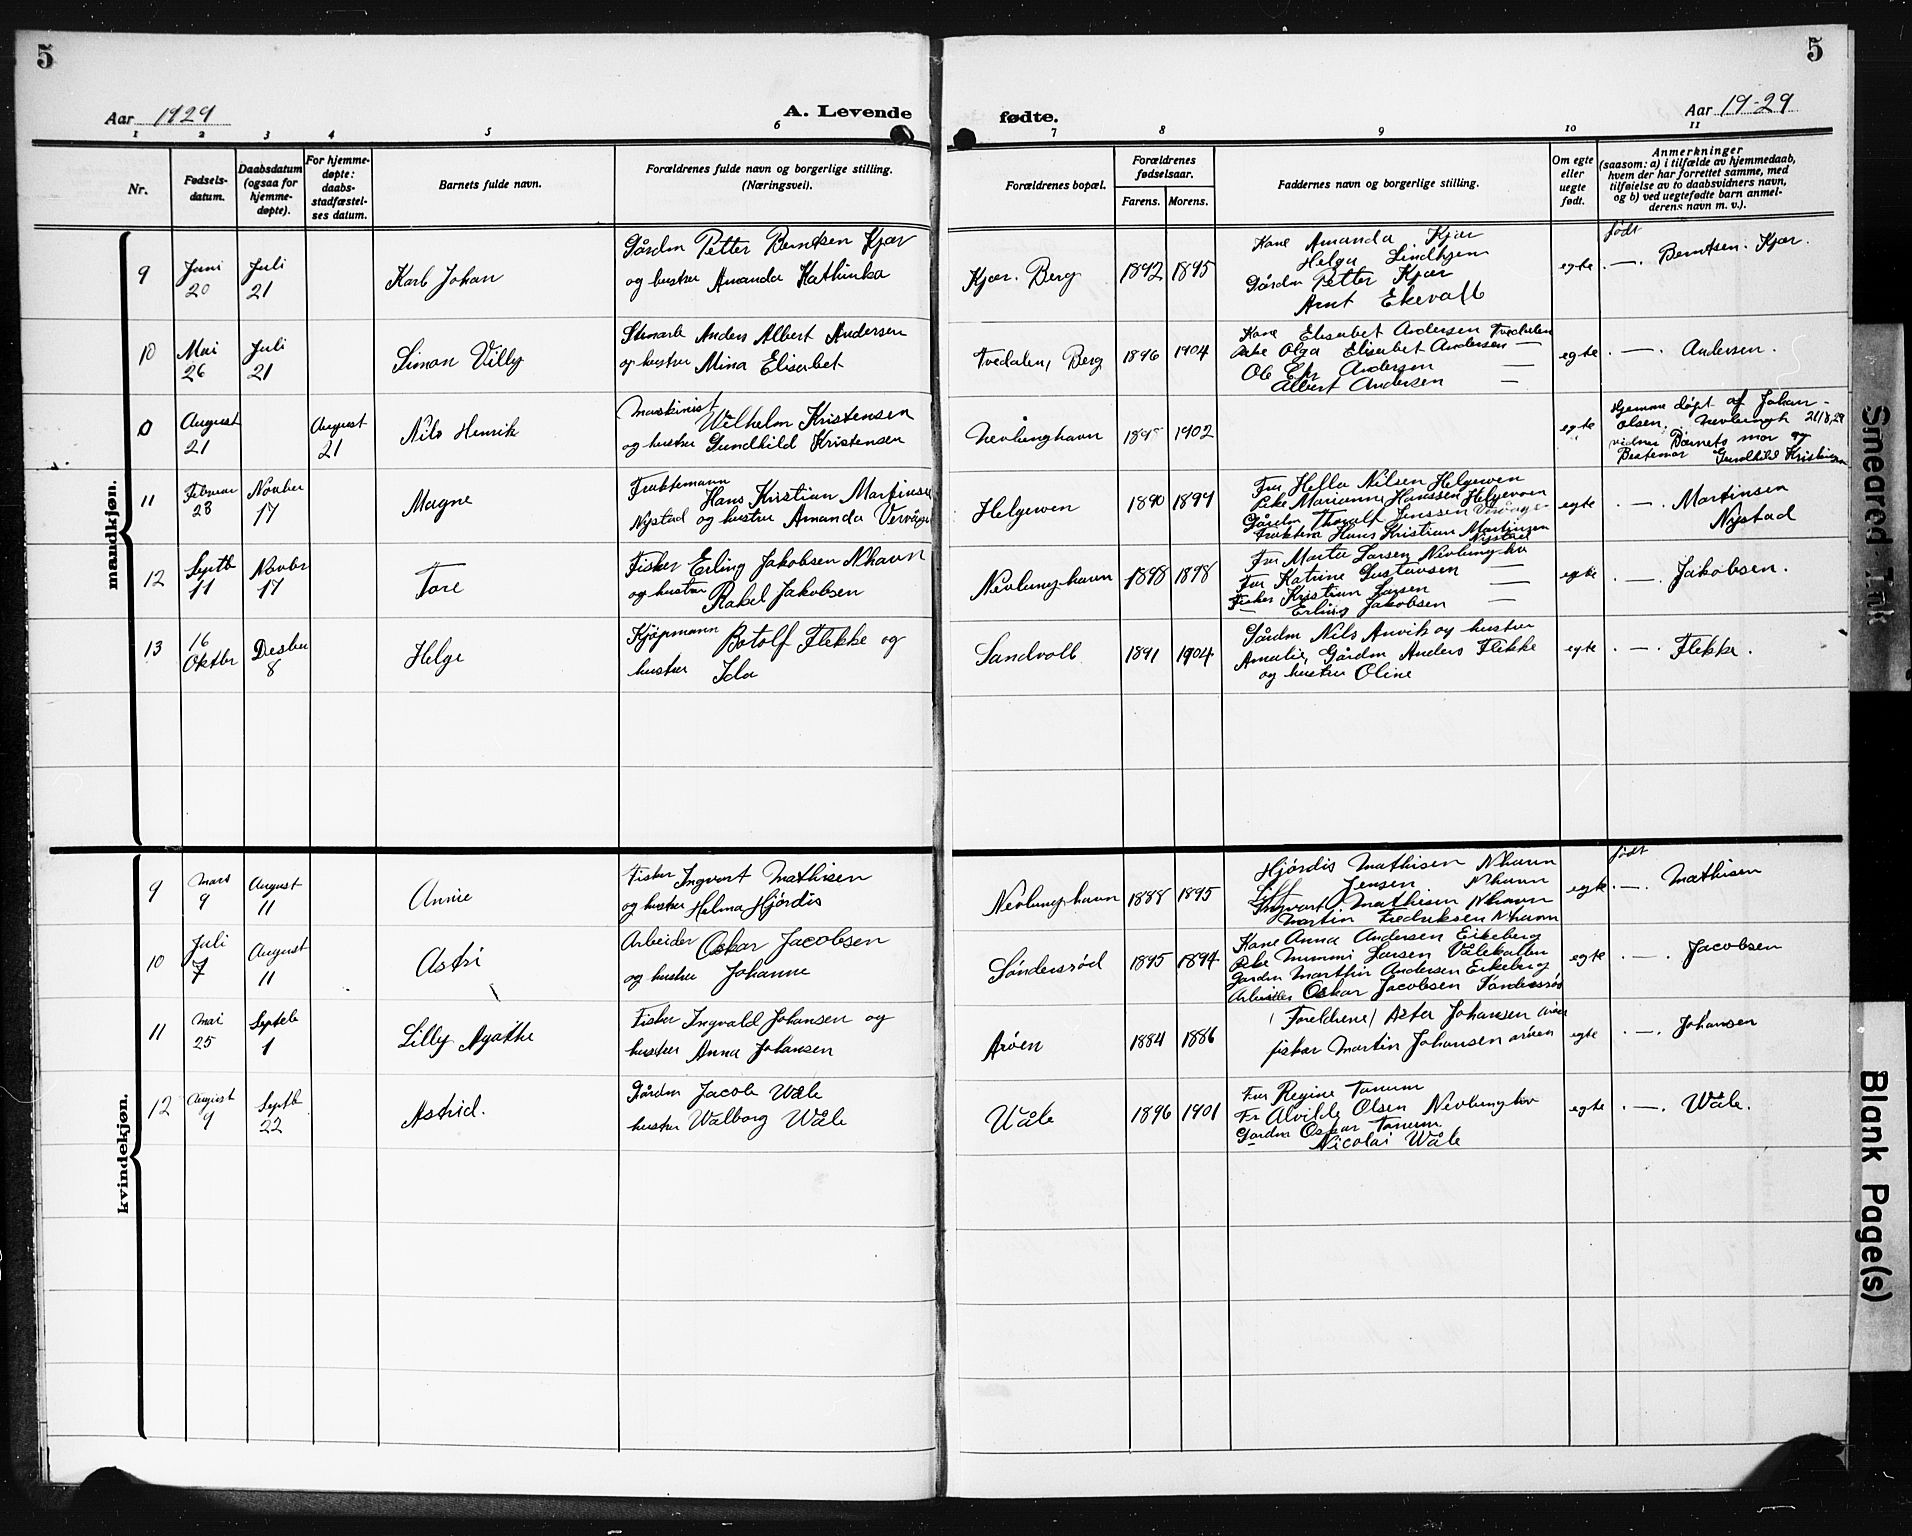 5
5
Aar 1929
A. Levende
fødte.
Aar 19-29
1 2 3 4 5 6 7 8 9 10 11
Nr.
Fødsels-
datum.
Daabsdatum
(ogsaa for
hjemme-
døpte).
For hjemme-
døpte:
daabs-
stadfæstel-
ses datum.
Barnets fulde navn.
Forældrenes fulde navn og borgerlige stilling.
(Næringsvei).
Forældrenes bopæl.
Forældrenes
fødselsaar.
Farens. Morens.
Faddernes navn og borgerlige stilling.
Om egte
eller
uegte
født.
Anmerkninger
(saasom: a) i tilfælde av hjemmedaab,
hvem der har forrettet samme, med
tilføielse av to daabsvidners navn,
og b) ved uegtefødte barn anmel-
derens navn m. v.).
mandkjøn.
9
Juni
20
Juli
21
Karl Johan
Gårdm Petter Berntsen Kjær
og hustru Amanda Kathinka
Kjær. Berg
1892 1895
Kone Amanda Kjær
Helga Lindhjem
Gårdm Petter Kjær
Arnt Ekevall
egte
født
. — . Berntsen. Kjær.
10
Mai
26
Juli
21
Simon Villy
Anders Albert Andersen
og hustru Mina Elisabet
Tvedalen, Berg
1896 1904
Kone Elisabet Andersen Tvedalen
Olga Elisabet Andersen —
Andersen —
Albert Andersen —
egte
. — . Andersen.
0
August
21
August
21
Nils Henrik
Maskinist
Wilhelm Kristensen
og hustru Gundhild Kristensen
Nevlunghavn
1902
egte
Hjemme døpt af Johan
Olsen, Nevlungh 21/8,29
vidner Barnets mor og
Bestemor Gundhild Kristensen
11
Februar
23
Novber
17
Magne
Fraktemann
Hans Kristian Martinsen
Nystad og hustru Amanda
Helgeroen
1890 1894
Fru Hella Nilsen Helgeroen
Pike Marianne Hanssen Helgeroen
Gårdm Thoralf Jenssen
Hans Kristian Martinsen
Nystad
egte
. — . Martinsen
Nystad
12
Septb
11
Novbr
17
Tore
Fisker Erling Jakobsen Nhavn
og hustru
Rakel Jakobsen
Nevlunghavn
1898 1898
Fru Marta Larsen Nevlunghv
Fru Katrine Gustavsen —
Fisker Kristian Larsen —
— Erling Jakobsen —
egte
. — . Jakobsen.
13
16
Oktbr
Desber
8
Helge
Kjøpmann Botolf Flekke og
hustru
Ida
Sandvoll
1891 1904
Gårdm Nils Anvik og hustru
Amalie, Gårdm Anders Flekke
og hustru Oline
egte
. — . Flekke.
kvindekjøn.
9
Mars
9
August
11
Annie
Fisker Ingvart Mathisen
og hustru Helma Hjørdis
Nevlunghavn
1888 1895
Hjørdis Mathisen Nhavn
Jensen Nhavn
Ingvart Mathisen Nhavn
Martin Fredriksen Nhavn
egte
født
. — . Mathisen
10
Juli
7
August
11
Astri
Arbeider Oskar Jacobsen
og hustru Johanne
Søndersrød
1895 1894
Kone Anna Andersen Eikeberg
Pike Mimmi Larsen Vålekallen
Gardm Marthin Andersen Eikeberg
Arbeider Oskar Jacobsen Søndersrød
egte
. — . Jacobsen
11
Mai
25
Septeb
1
Lilly Agathe
Fisker Ingvald Johansen og
hustru Anna Johansen
Arøen
1884 1886
(Foreldrene) Johansen
fisker Martin Johansen arøen
egte
. — . Johansen
12
August
9
Septb
22
Astrid.
Gårdm Jacob Wåle
hustru Walborg Wåle
Wåle
1896 1901
Fru Regine Tanum
Fr Alvilde Olsen Nevlunghav
Gardm Oskar Tanum
Nicolai Wåle
egte
. — . Wåle.
Smeared Ink
Blank Page(s)